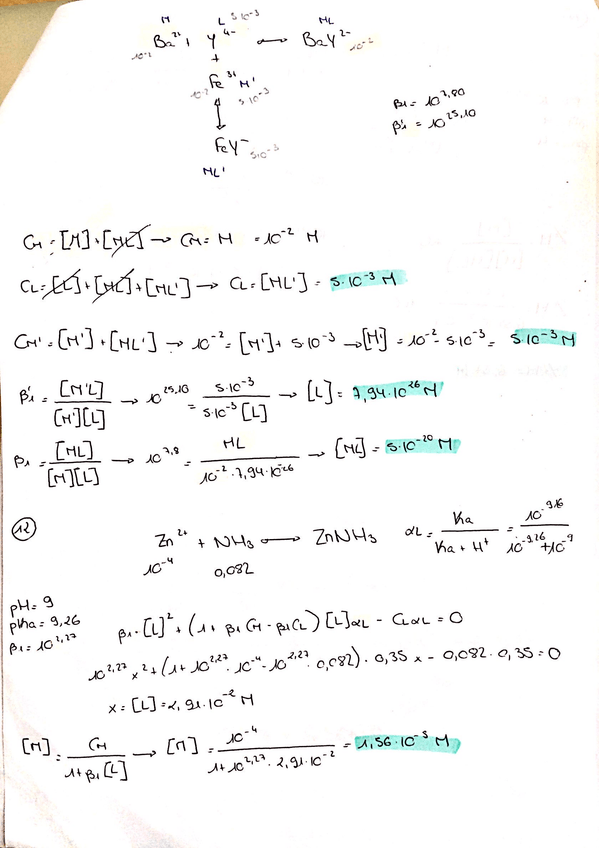 M L 5·10⁻³ ML
10⁻² Ba²⁺ + Y⁴⁻ ⟷ BaY²⁻ 10⁻²
+
10⁻² Fe³⁺ M' 5·10⁻³
β₁ = 10^7,80
↕
β'₁ = 10^25,10
FeY⁻ 5·10⁻³
ML'
CM = [M] + [ML] → CM = M = 10⁻² M
CL = [L] + [ML] + [ML'] → CL = [ML'] = 5·10⁻³ M
CM' = [M'] + [ML'] → 10⁻² = [M'] + 5·10⁻³ → [M'] = 10⁻² - 5·10⁻³ = 5·10⁻³ M
β'₁ = [M'L] / [M'][L] → 10^25,10 = 5·10⁻³ / 5·10⁻³ [L] → [L] = 7,94·10^26 M
β₁ = [ML] / [M][L] → 10^7,8 = ML / 10⁻²·7,94·10⁻²⁶ → [ML] = 5·10⁻²⁰ M
12
Zn²⁺ + NH₃ ⟷ ZnNH₃ αL = Ka / Ka + H⁺ = 10^-9,26 / 10^-9,26 + 10⁻⁹
10⁻⁴ 0,082
pH = 9
pKa = 9,26
β₁ = 10^2,27
β₁·[L]² + (1 + β₁ CM - β₁ CL) [L] αL - CL αL = 0
10^2,27 x² + (1 + 10^2,27·10⁻⁴ - 10^2,27·0,082)·0,35 x - 0,082·0,35 = 0
x = [L] = 2,91·10⁻² M
[M] = CM / 1 + β₁ [L] → [M] = 10⁻⁴ / 1 + 10^2,27·2,91·10⁻² = 1,56·10⁻⁵ M